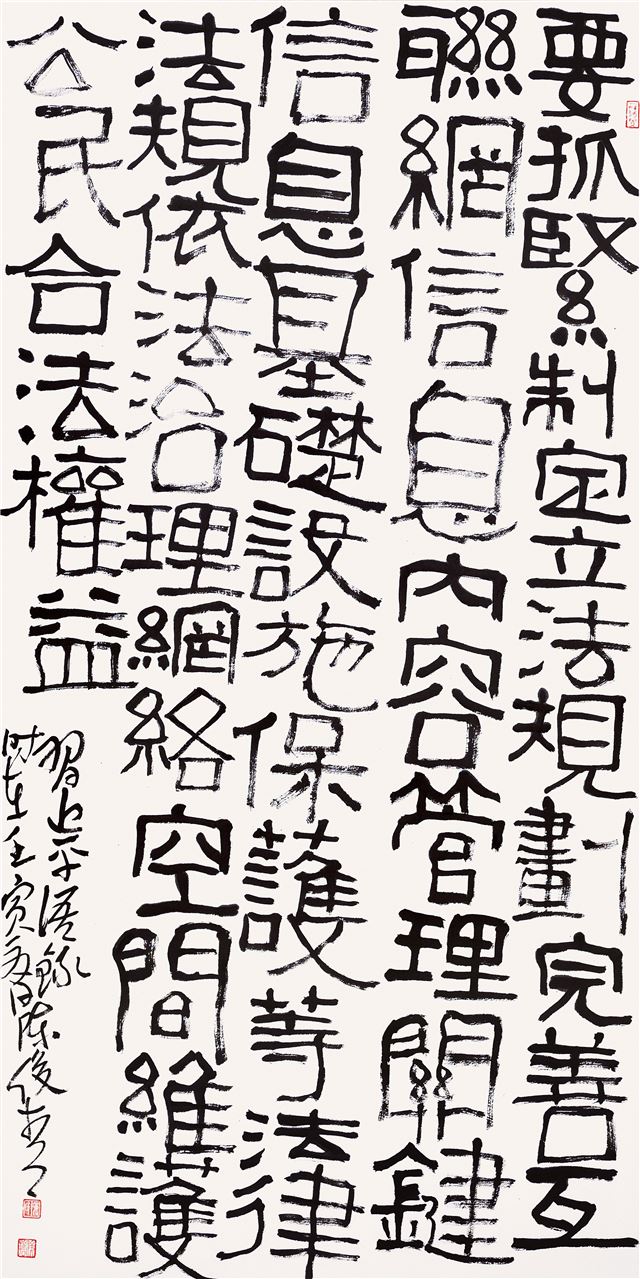 要抓緊制定立法規劃完善互
聯網信息內容管理關鍵
信息基礎設施保護等法律
法規依法治理網絡空間維護
公民合法權益
習近平語錄
時在壬寅夏月陳俊